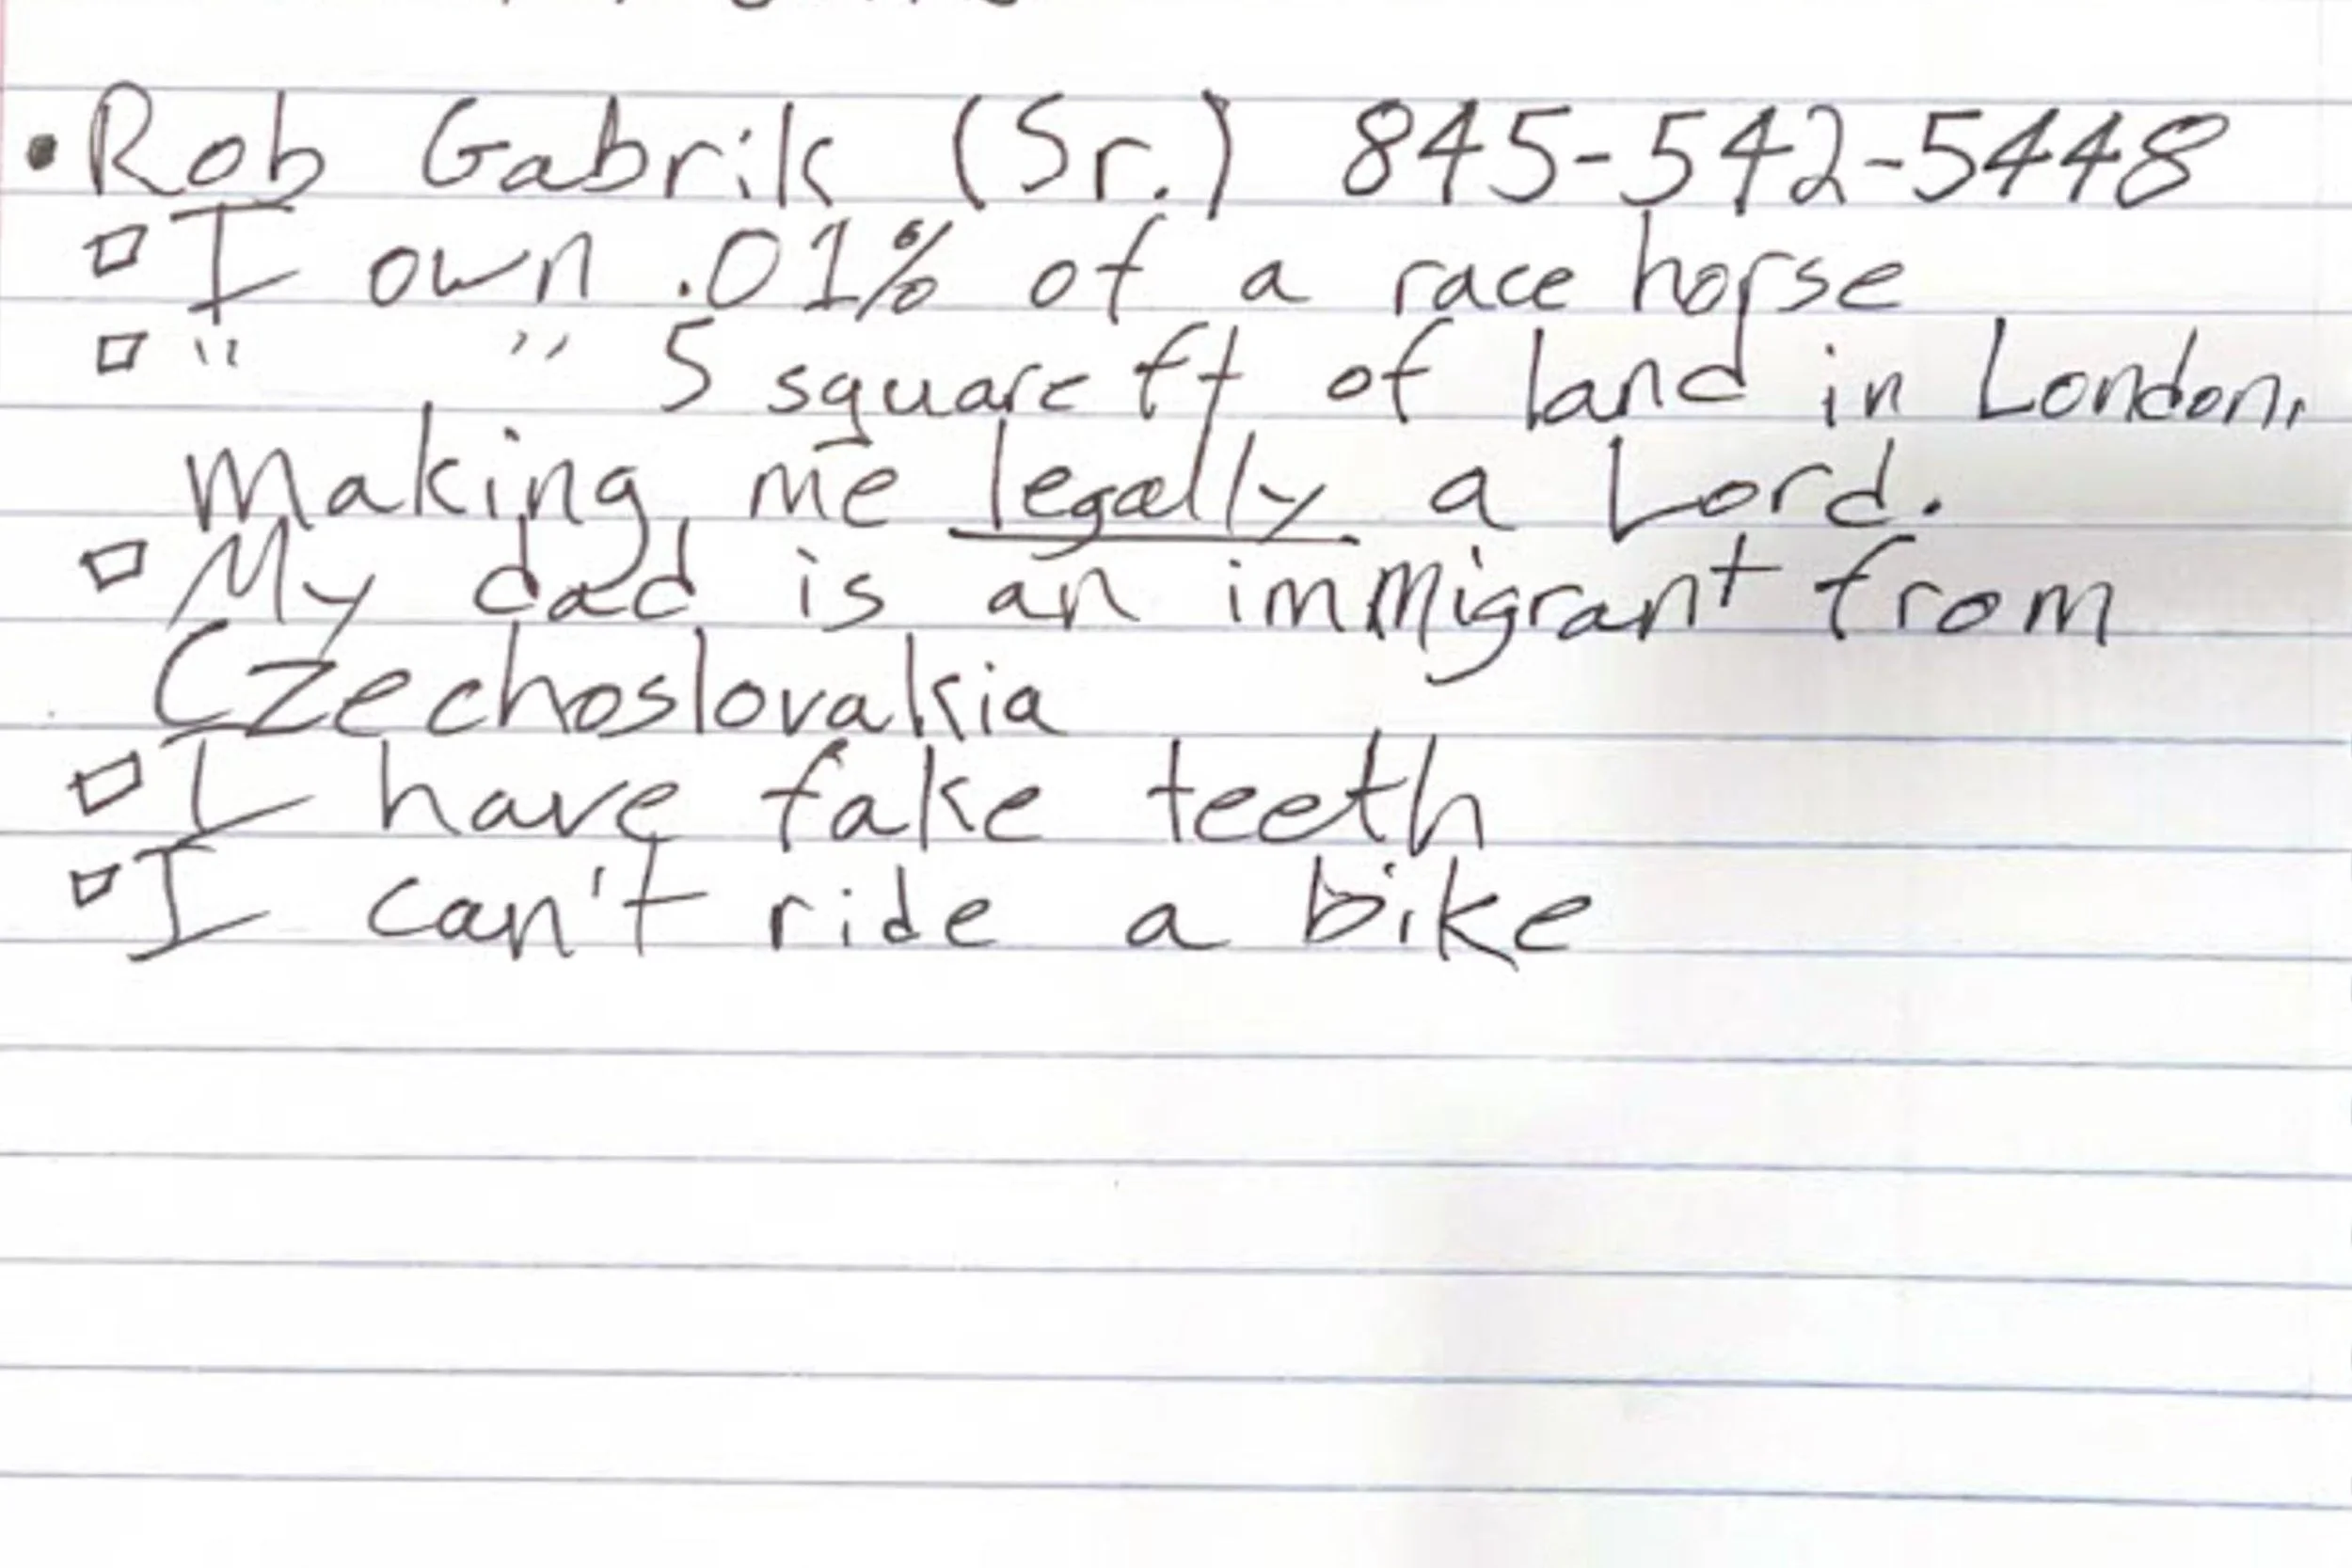 • Rob Gabrik (Sr.) 845-542-5448
▫ I own .01% of a race horse
▫ " " 5 square ft of land in London,
making me legally a Lord.
▫ My dad is an immigrant from
Czechoslovakia
▫ I have fake teeth
▫ I can't ride a bike